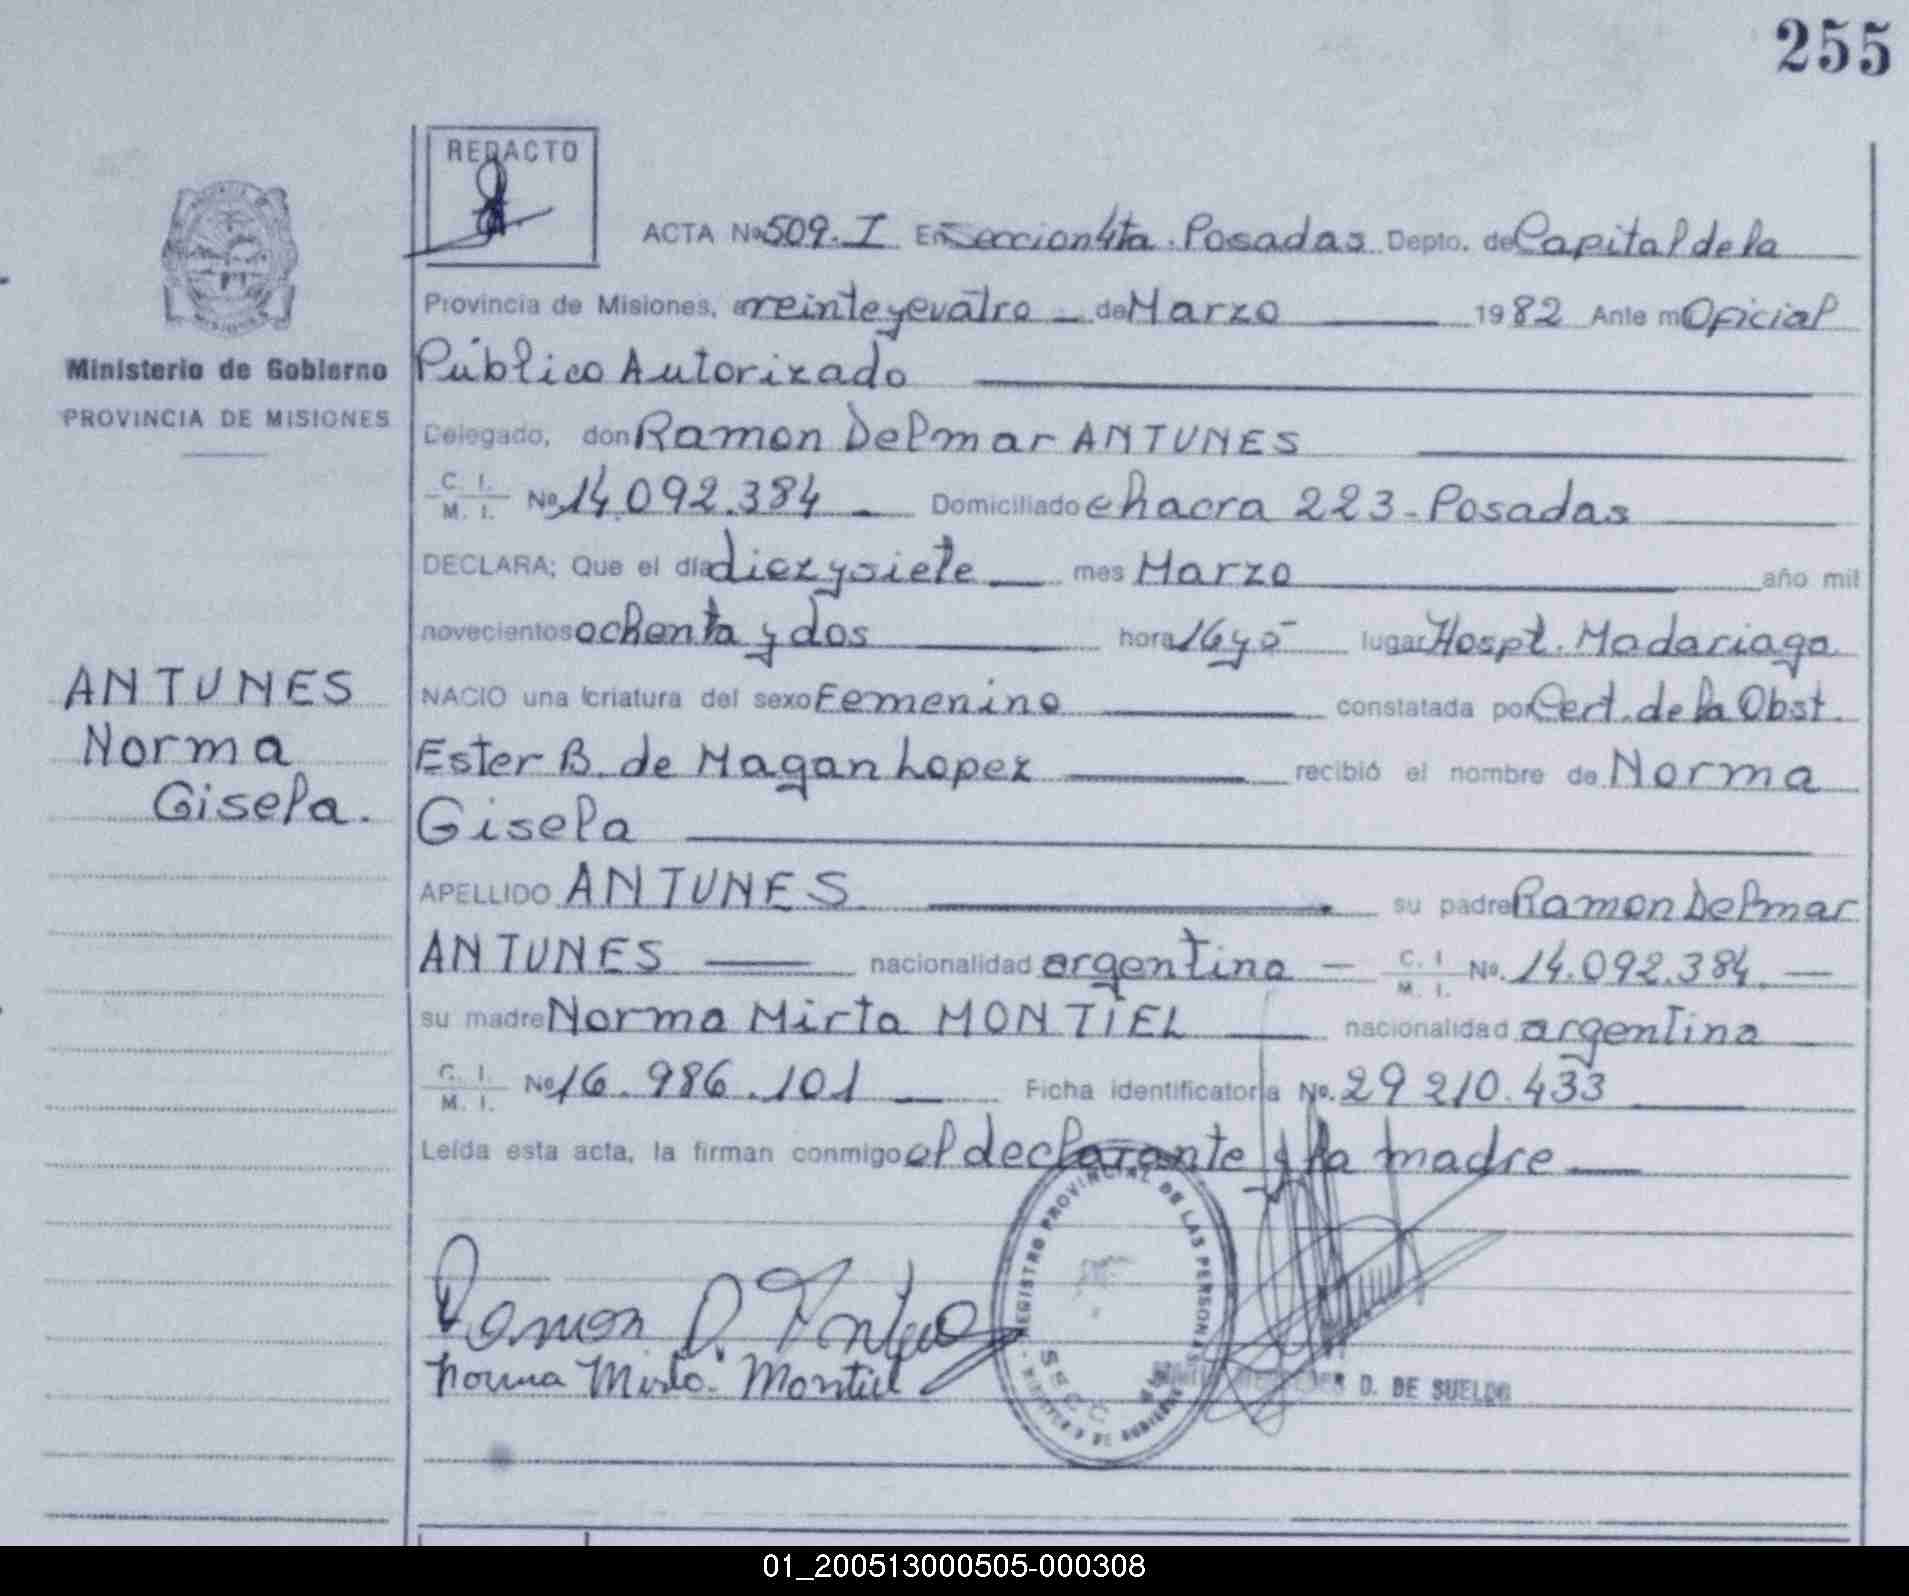 255
REDACTO
ACTA Nº 509.I En Seccion 4ta. Posadas Depto. de Capital de la
Provincia de Misiones, a veinteycuatro de Marzo 1982 Ante mi Oficial
Público Autorizado
Ministerio de Gobierno
PROVINCIA DE MISIONES
Delegado, don Ramon Delmar ANTUNES
C. I. M. I. Nº 14.092.384 Domiciliado chacra 223-Posadas
DECLARA; Que el día diezysiete mes Marzo año mil
novecientos ochenta y dos hora 16y5 lugar Hospt. Madariaga
ANTUNES
Norma
Gisela.
NACIO una criatura del sexo Femenino constatada por Cert. de la Obst.
Ester B. de Magan Lopez recibió el nombre de Norma
Gisela
APELLIDO ANTUNES su padre Ramon Delmar
ANTUNES nacionalidad argentina C. I M. I. Nº. 14.092.384.
su madre Norma Mirta MONTIEL nacionalidad argentina
C. I. M. I. Nº 16.986.101 Ficha identificatoria Nº. 29 210.433
Leída esta acta, la firman conmigo el declarante y la madre
Ramon D. Antunes
Norma Mirta Montiel
REGISTRO PROVINCIAL DE LAS PERSONAS
D. DE SUELDO
01_200513000505-000308